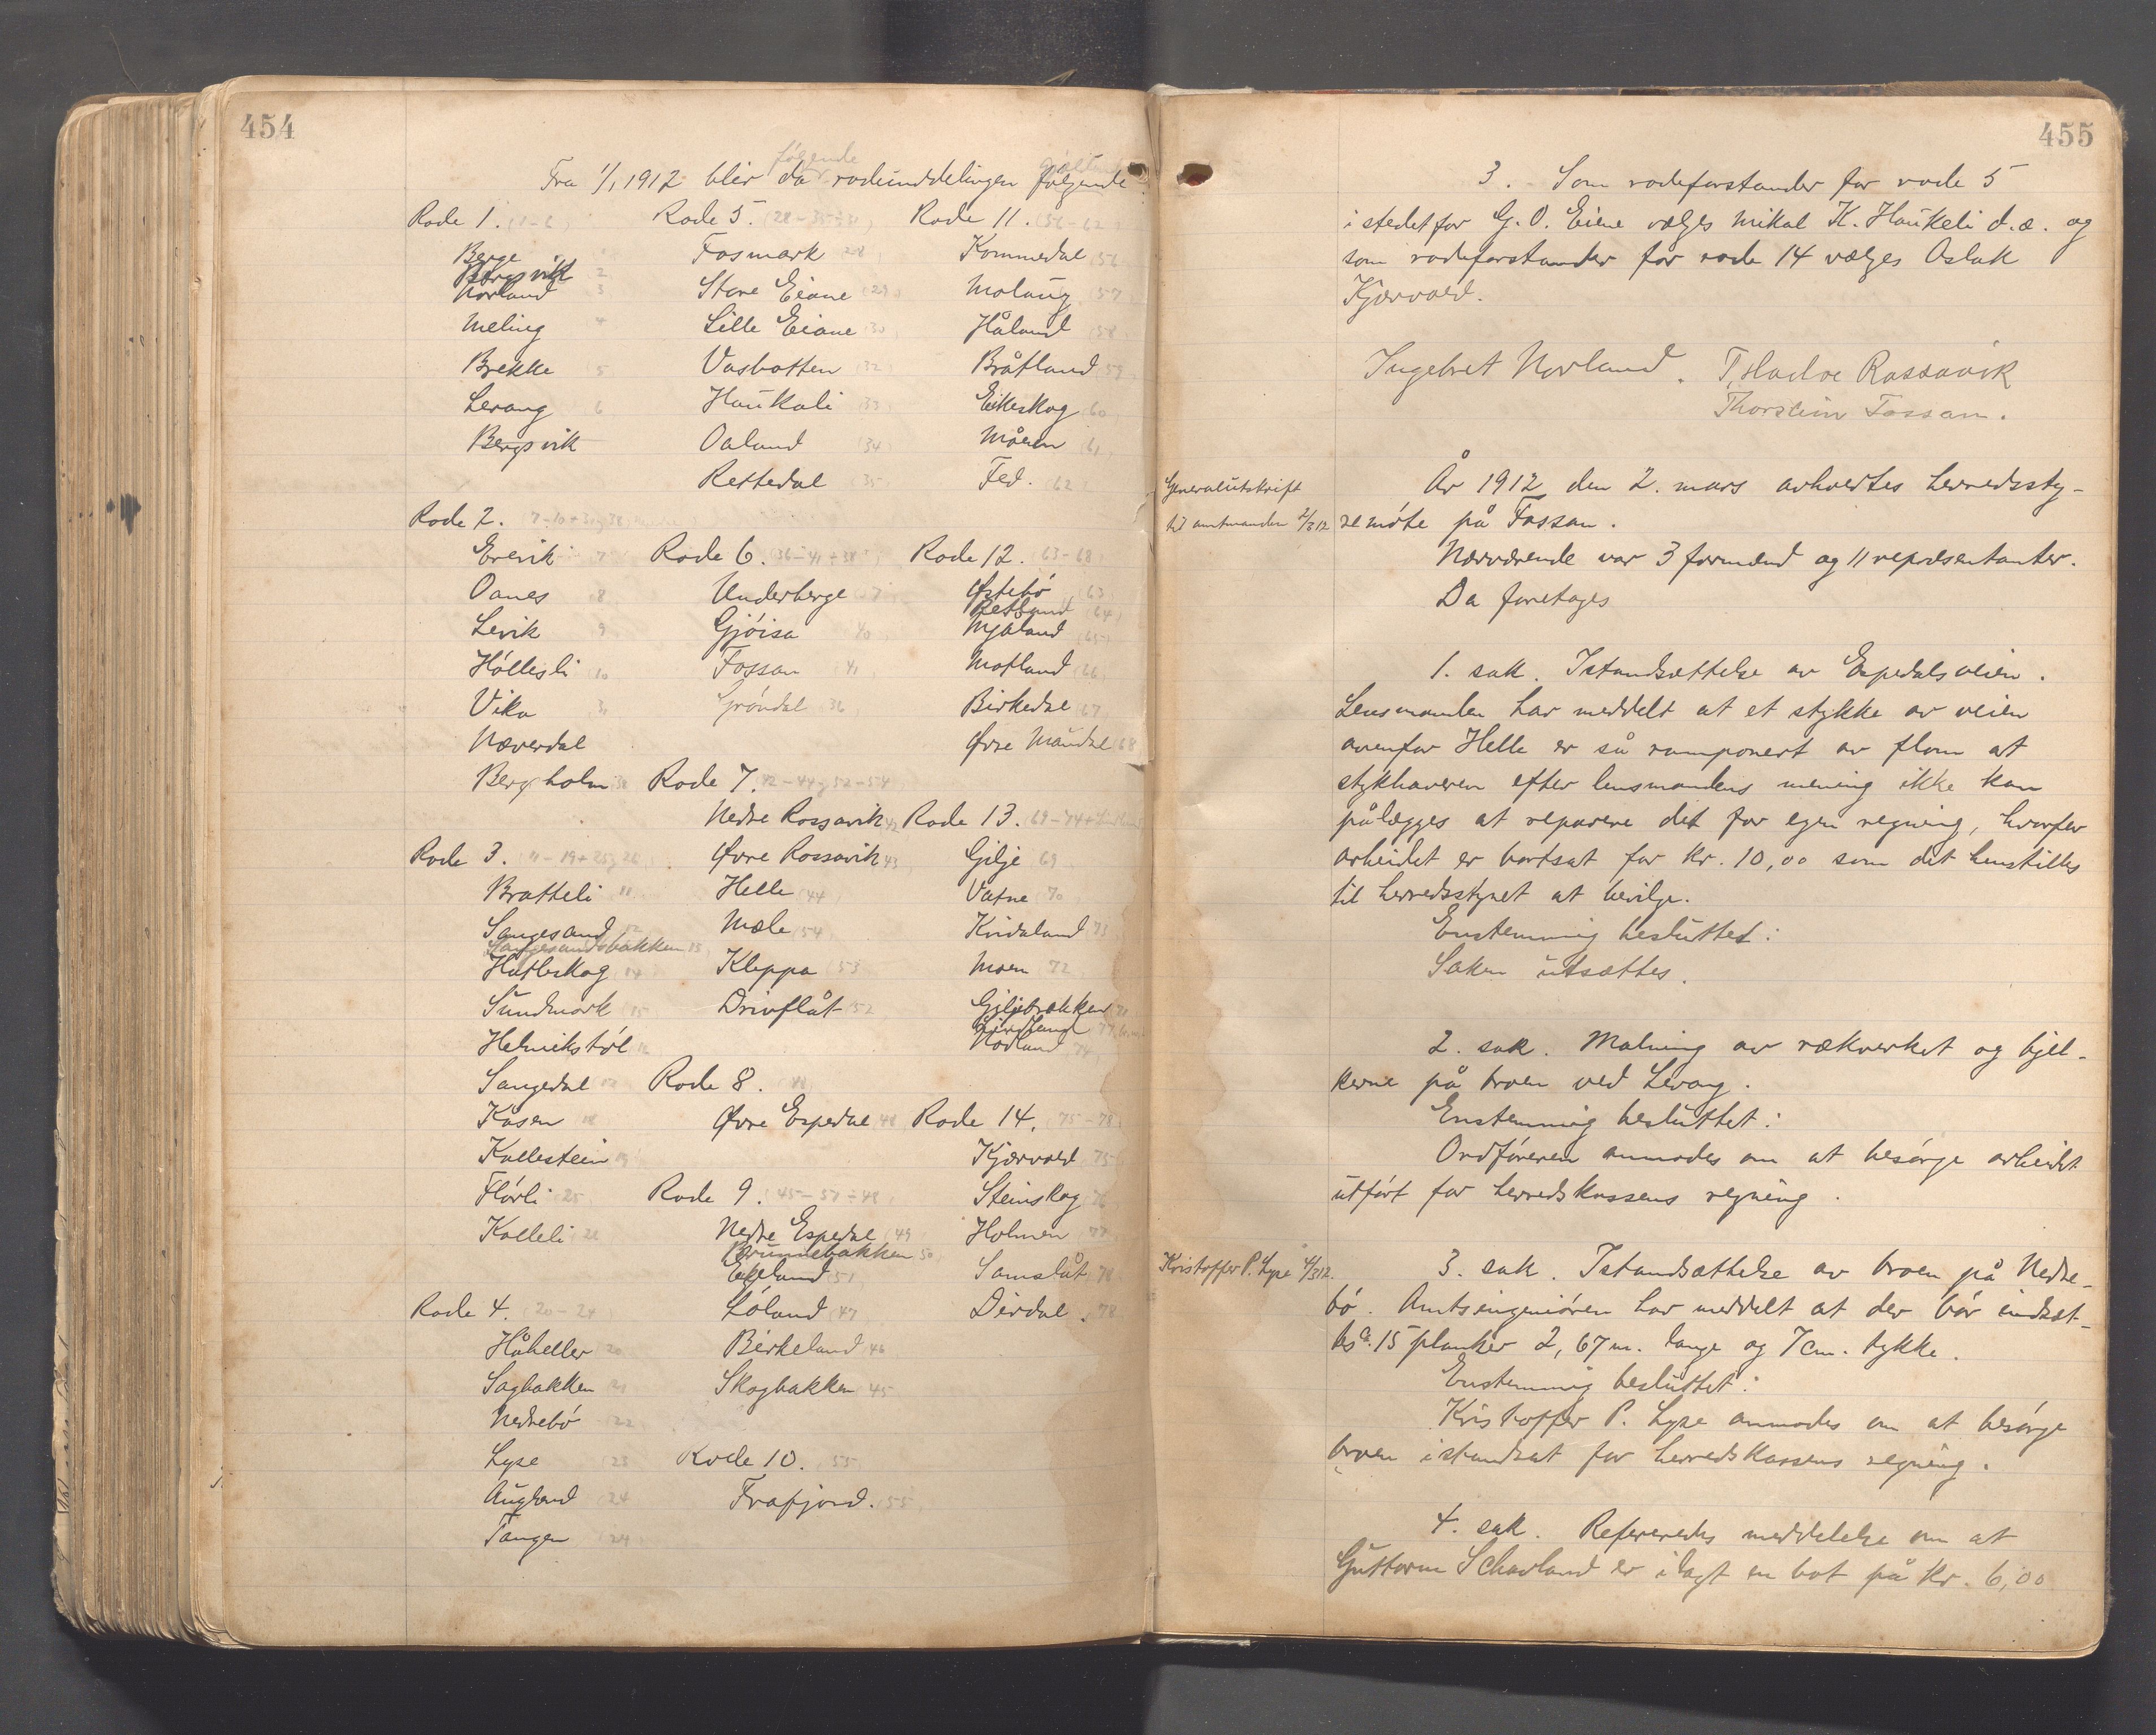 454
følgende
Fra 1/1 1912 blir da rodeinddelingen følgende:
Rode 1. (1-6)
Berge
Bergsvik 2
Norland 3
Meling 4
Brekke 5
Levang 6
Bergsvik
Rode 2.
Erevik 7
Oanes 8
Levik 9
Høllesli 10
Vika 31
Næverdal
Bergsholm 38
Rode 3. (11-19+25 26)
Bratteli 11
Sangesand 12
Sangesandsbakken 13
Hatleskog 14
Sundmork 15
Helmikstøl
Sangedal 17
Kåsen 18
Kallestein 19
Flørli 25
Kalleli 26
Rode 4. (20-24)
Håheller 20
Sagbakken 21
Nedrebø 22
Lyse 23
Augland 24
Tangen 24
Rode 5. (28-35÷31)
Fosmark 28
Store Eiane 29
Lille Eiane 30
Vasbotten 32
Haukali 33
Oaland 34
Rettedal 35
Rode 6. (36-41÷38)
Underberge
Gjøisa 40
Fossan 41
Grøndal 36
Rode 7. 42-44 52-54
Nedre Rossavik 42
Øvre Rossavik 43
Helle 44
Mæle 54
Kleppa 53
Drivflåt 52
Rode 8. 48
Øvre Espedal 48
Rode 9. (45-51÷48)
Nedre Espedal 49
Brunnebakken 50
Eikeland 51
Løland 47
Birkeland 46
Skogbakken 45
Rode 10. 55
Frafjord. 55
Rode 11. (56-62)
Kommedal 56
Molaug 57
Håland 58
Bråtland 59
Eikeskog 60
Måsen 61
Fed. 62
Rode 12. (63-68)
Østebø 63
Røtland 64
Mjåland 65
Motland 66
Birkedal 67
Øvre Maudal 68
Rode 13. (69-74
Gilje 69
Vatne 70
Kvidaland 73
Moen 72
Giljebrekken 71
Lindland
Nødland 74
Rode 14. 75-78
Kjærvold 75
Steinskog 76
Holmen 77
Samslåt 78
Dirdal. 78
455
3. Som rodeforstander for rode 5
istedetfor G. O. Eiene vælges Mikal K. Haukeli d.æ. og
som rodeforstander for rode 14 vælges Aslak
Kjærvold.
Ingebret Norland. T. Hadve Rossavik
Thorstein Fossan.
Generalutskrift
til amtmanden 2/3 12
År 1912 den 2. mars avholdtes herredssty-
remøte på Fossan.
Nærværende var 3 formænd og 11 repræsentanter.
Da foretages
1. sak. Istandsættelse av Espedalsveien.
Lensmanden har meddelt at et stykke av veien
ovenfor Helle er så ramponert av flom at
stykhaveren efter lensmandens mening ikke kan
pålægges at reparere det for egen regning, hvorfor
arbeidet er bortsat for kr. 10,00 som det henstilles
til herredsstyret at bevilge.
Enstemmig besluttet:
Saken utsættes.
2. sak. Maling av rækverket og bjel-
kerne på broen ved Levang.
Enstemmig besluttet:
Ordføreren anmodes om at besørge arbeidet
utført for herredskassens regning.
Kristoffer P. Lyse 4/3 12.
3. sak. Istandsættelse av broen på Nedre-
bø. Amtsingeniøren har meddelt at der bør indsæt-
tes ca. 15 planker 2,67 m. lange og 7 cm. tykke.
Enstemmig besluttet:
Kristoffer P. Lyse anmodes om at besørge
broen istandsat for herredskassens regning.
4. sak. Referertes meddelelse om at
Guttorm Schavland er ilagt en bot på kr. 6,00